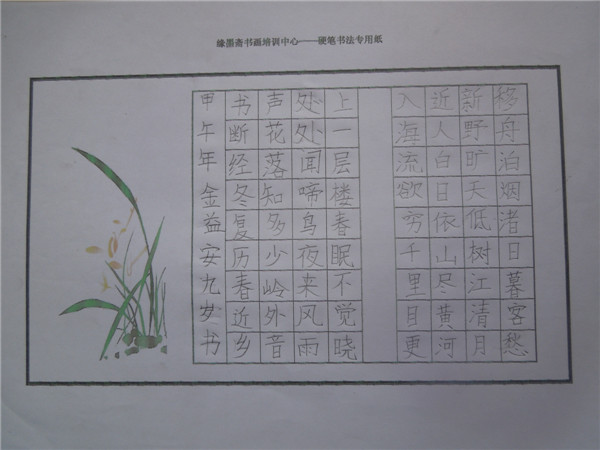 缘墨斋书画培训中心——硬笔书法专用纸
移舟泊烟渚日暮客愁
新野旷天低树江清月
近人白日依山尽黄河
入海流欲穷千里目更
上一层楼春眠不觉晓
处处闻啼鸟夜来风雨
声花落知多少岭外音
书断经冬复历春近乡
甲午年金益安九岁书